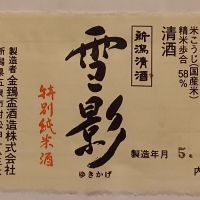 米こうじ(国産米)
精米歩合 58%
清酒
新潟清酒
製造年月 5.
雪影
ゆきかげ
特別純米酒
製造者 金鵄盃酒造株式会社
新潟県五泉市村松甲